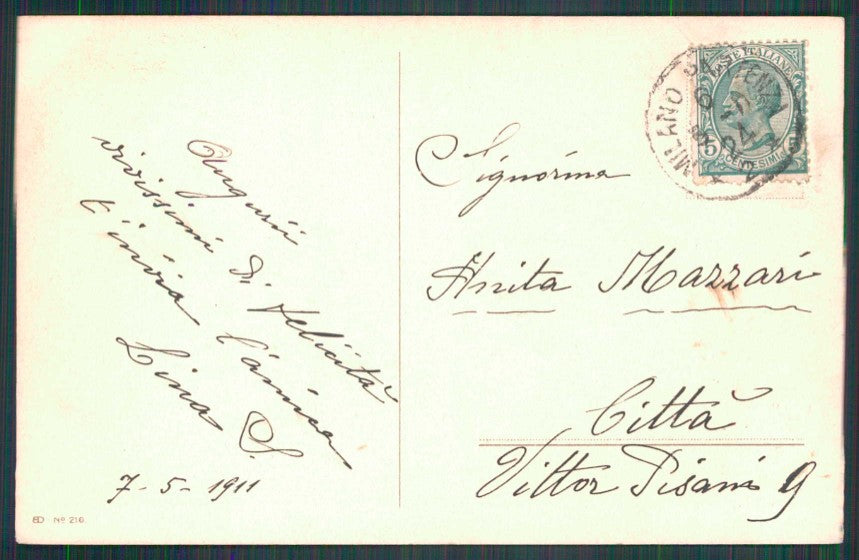 Auguri
vivissimi di felicità
t'invia l'amica
Lina C.
7-5-1911
ED Nº 216
POSTE ITALIANE
CENTESIMI
MILANO
Signorina
Anita Mazzari
Città
Vittor Pisani 9